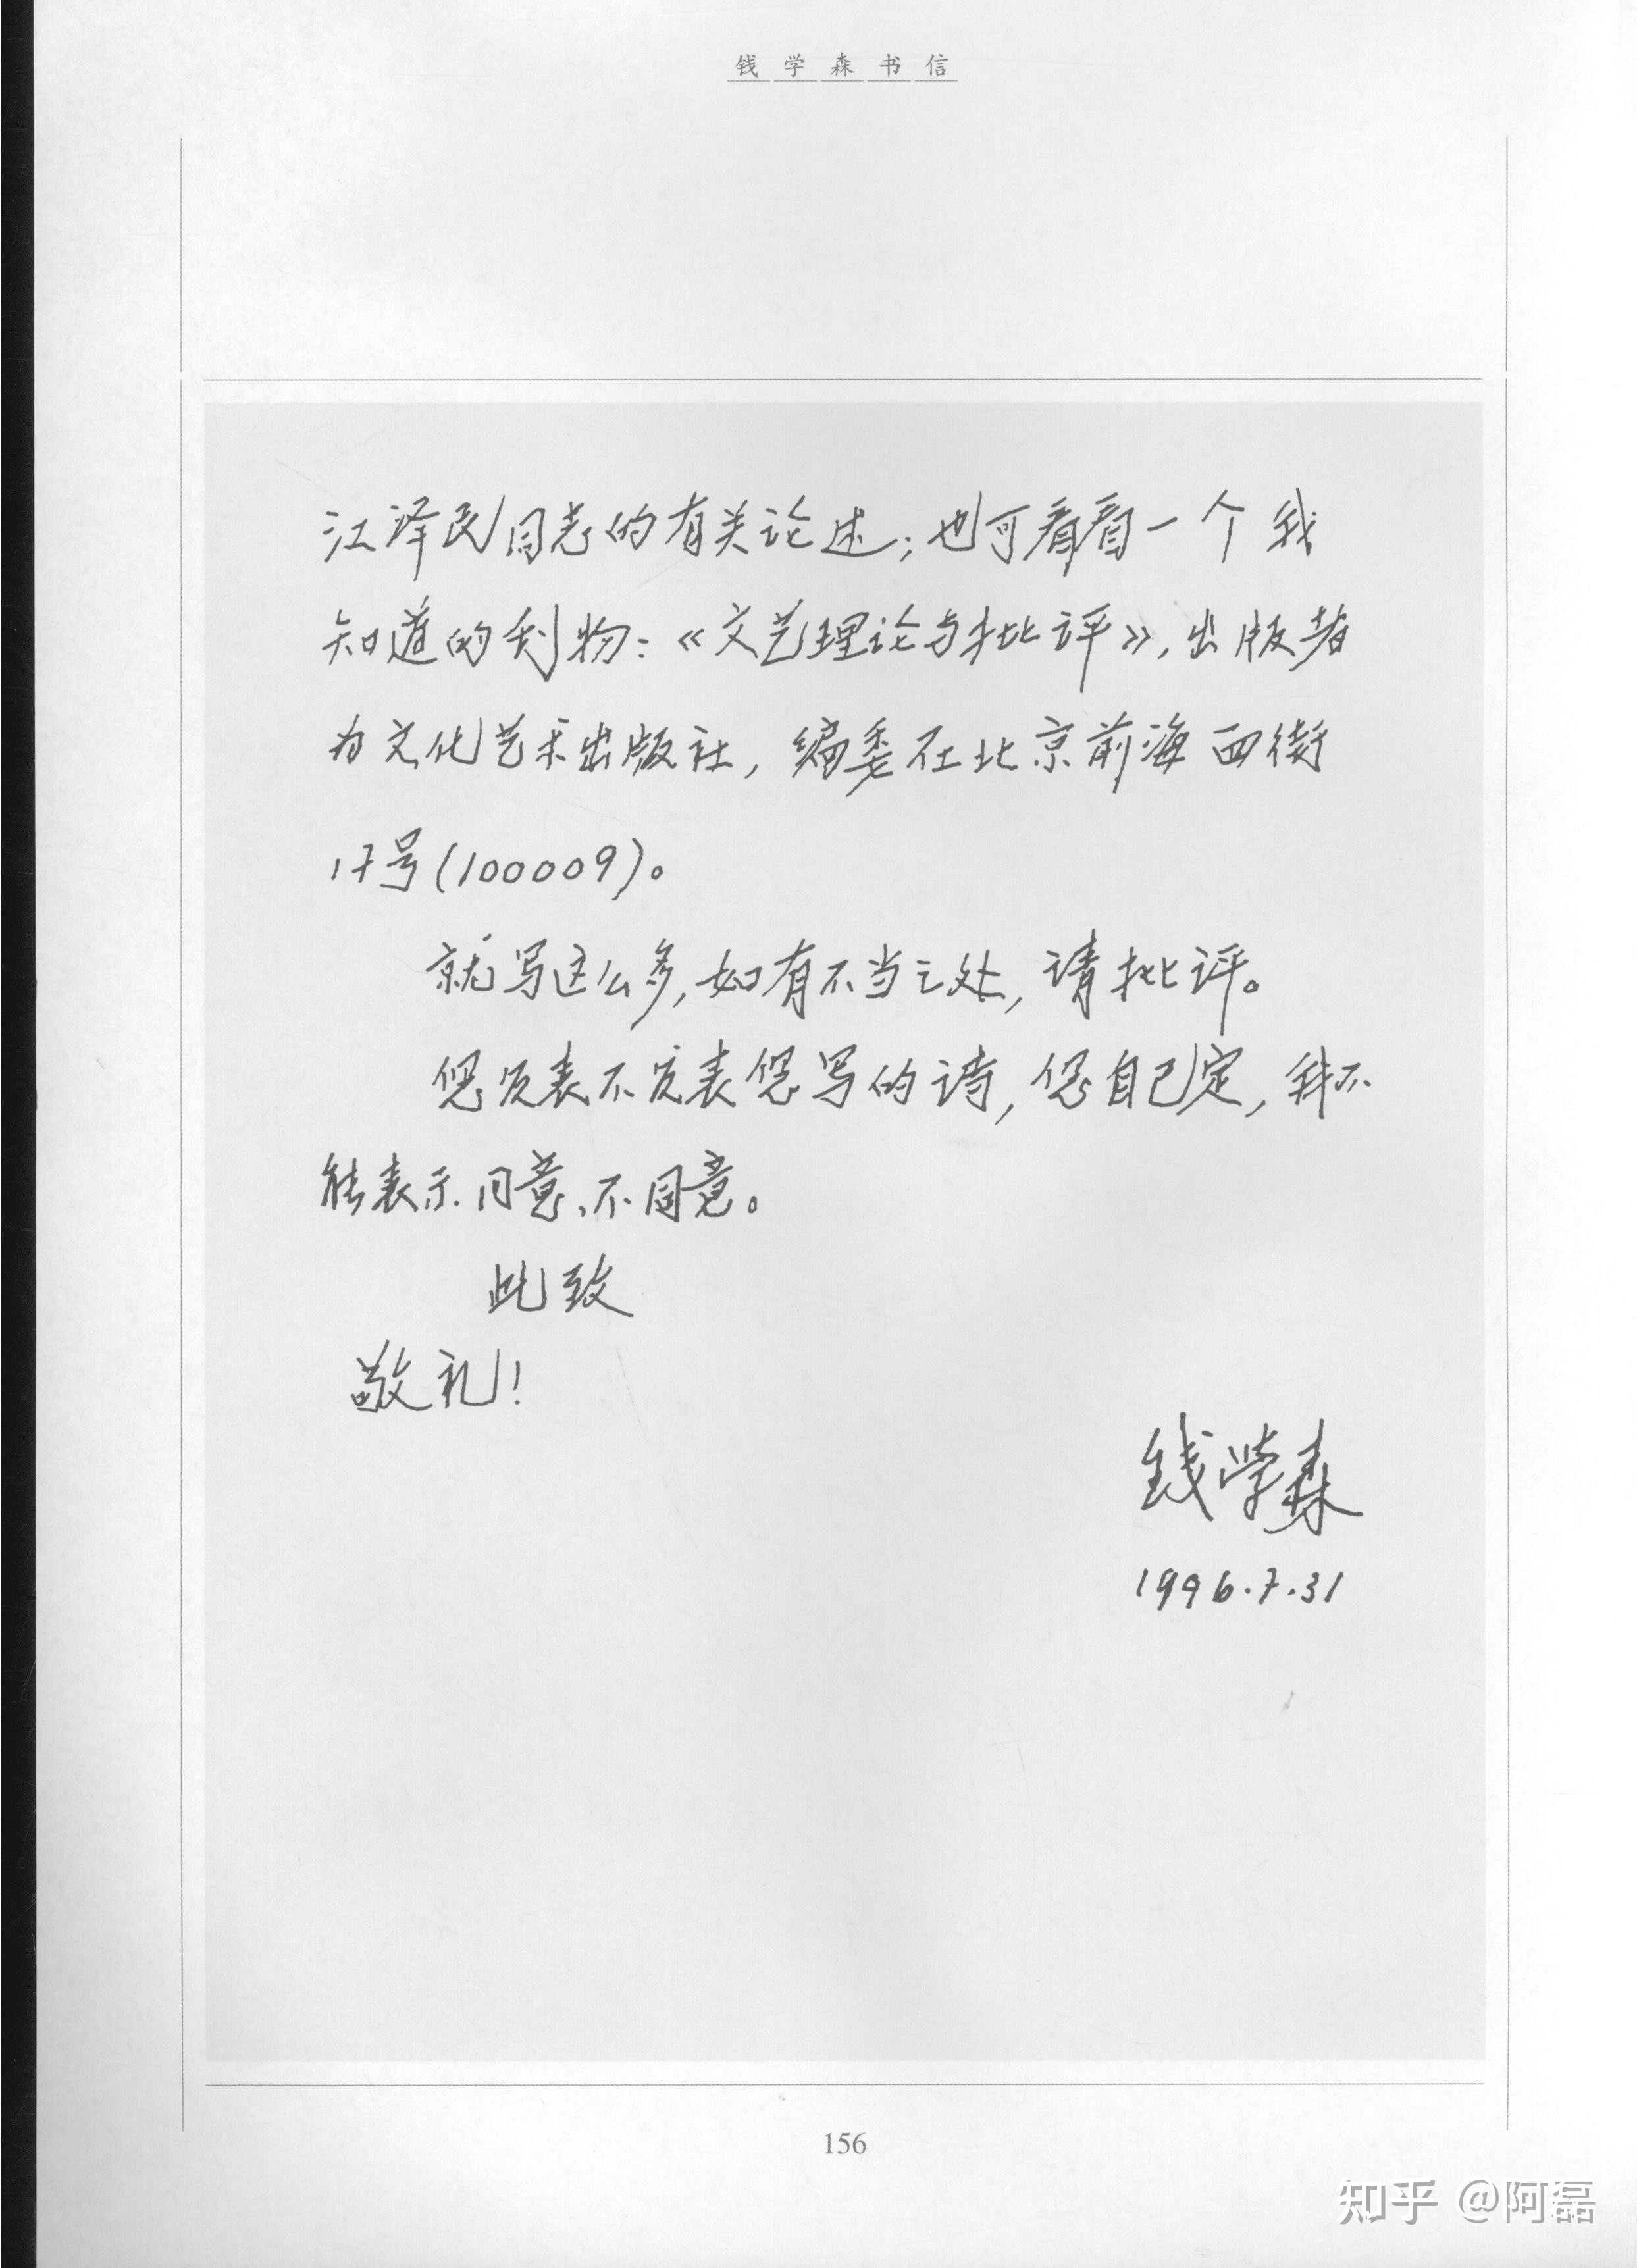 钱学森书信
江泽民同志的有关论述；也可看看一个我
知道的刊物：《文艺理论与批评》，出版者
为文化艺术出版社，编委在北京前海西街
17号(100009)。
就写这么多，如有不当之处，请批评。
您发表不发表您写的诗，您自己定，我不
能表示同意、不同意。
此致
敬礼！
钱学森
1996.7.31
156
知乎 @阿磊